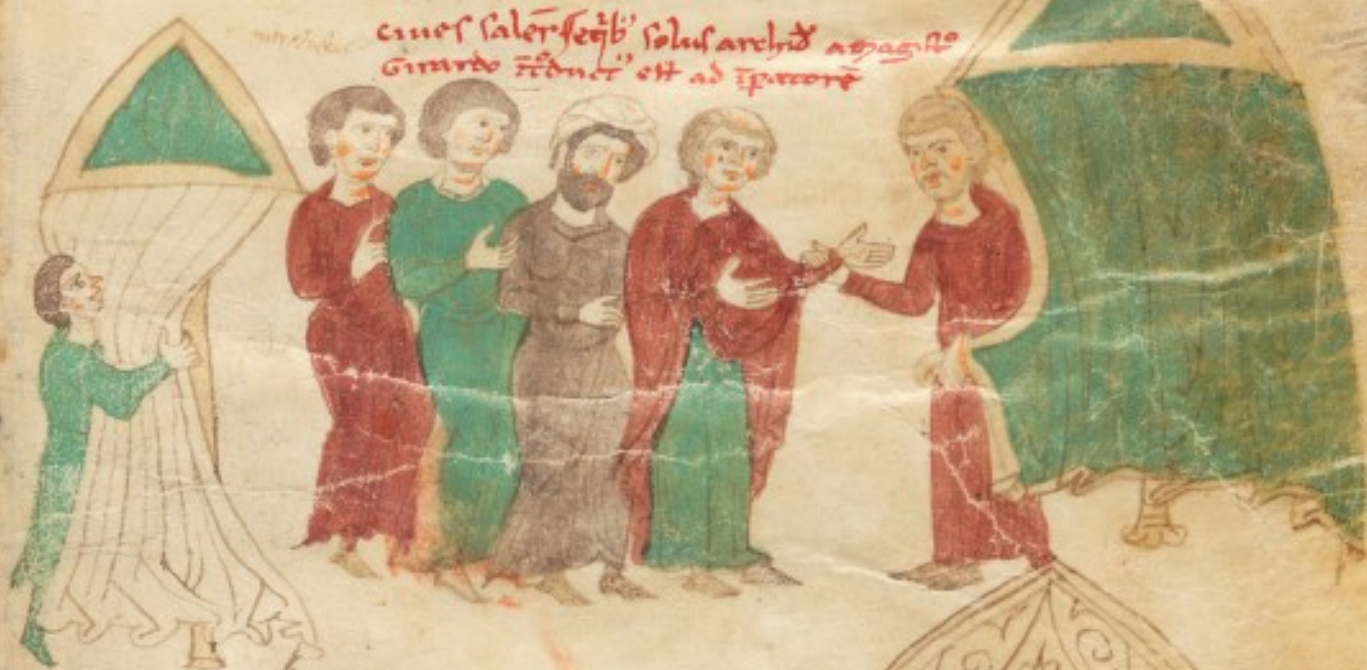 ciues saler̄ seqͥb' solus archid̄ a magistͦ
Girardo ītͦduct' est ad īpatorē